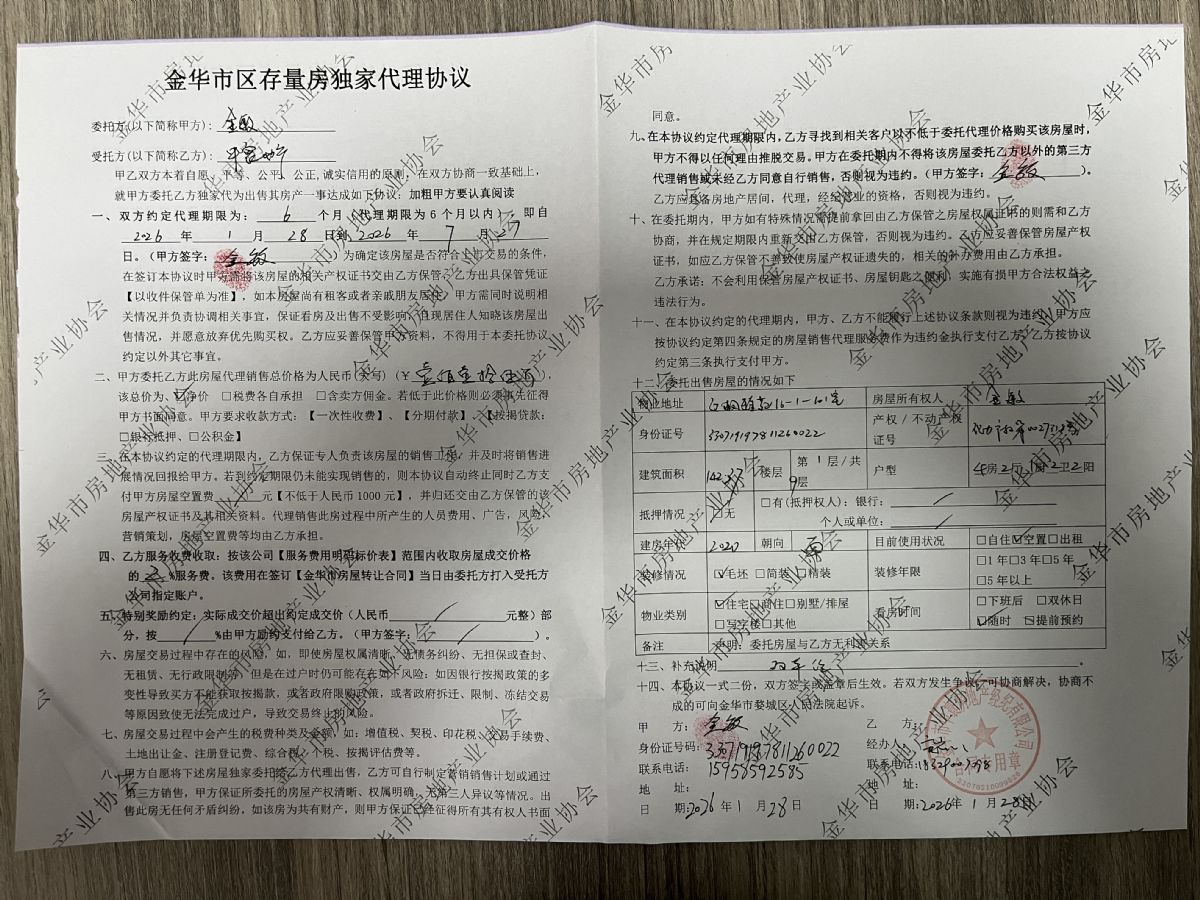 金华市区存量房独家代理协议
委托方(以下简称甲方)：金敏
受托方(以下简称乙方)：
甲乙双方本着自愿、平等、公平、公正,诚实信用的原则，在双方协商一致基础上，
就甲方委托乙方独家代为出售其房产一事达成如下协议：加粗甲方要认真阅读
一、双方约定代理期限为：6个月（代理期限为6个月以内），即自
2026年1月28日到2026年7月27
日。（甲方签字：金敏）为确定该房屋是否符合上市交易的条件，
在签订本协议时甲方需将该房屋的相关产权证书交由乙方保管，乙方出具保管凭证
【以收件保管单为准】，如本房屋尚有租客或者亲戚朋友居住，甲方需同时说明相
关情况并负责协调相关事宜，保证看房及出售不受影响，且现居住人知晓该房屋出
售情况，并愿意放弃优先购买权。乙方应妥善保管甲方资料，不得用于本委托协议
约定以外其它事宜。
二、甲方委托乙方此房屋代理销售总价格为人民币（大写）（¥壹佰壹拾），
该总价为、☑净价 □税费各自承担 □含卖方佣金。若低于此价格则必须事先征得
甲方书面同意。甲方要求收款方式：【一次性收费】、【分期付款】、【按揭贷款：
□银行抵押、□公积金】
三、在本协议约定的代理期限内，乙方保证专人负责该房屋的销售工作，并及时将销售进
展情况回报给甲方。若到约定期限仍未能实现销售的，则本协议自动终止同时乙方支
付甲方房屋空置费 / 元【不低于人民币1000元】，并归还交由乙方保管的该
房屋产权证书及其相关资料。代理销售此房过程中所产生的人员费用、广告，风险，
营销策划，房屋空置费等均由乙方承担。
四、乙方服务收费收取：按该公司【服务费用明码标价表】范围内收取房屋成交价格
的 %服务费。该费用在签订【金华市房屋转让合同】当日由委托方打入受托方
公司指定账户。
五、特别奖励约定：实际成交价超出约定成交价（人民币 / 元整）部
分，按 / %由甲方励约支付给乙方。（甲方签字： / ）。
六、房屋交易过程中存在的风险，如，即使房屋权属清晰、无债务纠纷、无担保或查封、
无租赁、无行政限制等，但是在过户时仍可能存在如下风险：如因银行按揭政策的多
变性导致买方不能获取按揭款，或者政府限购政策，或者政府拆迁、限制、冻结交易
等原因致使无法完成过户，导致交易终止的风险。
七、房屋交易过程中会产生的税费种类及金额，如：增值税、契税、印花税、交易手续费、
土地出让金、注册登记费、综合税、个税、按揭评估费等。
八、甲方自愿将下述房屋独家委托给乙方代理出售，乙方可自行制定营销销售计划或通过
第三方销售，甲方保证所委托的房屋产权清晰、权属明确、无第三人异议等情况。出
售此房无任何矛盾纠纷，如该房为共有财产，则甲方保证已经征得所有其有权人书面
同意。
九、在本协议约定代理期限内,乙方寻找到相关客户以不低于委托代理价格购买该房屋时，
甲方不得以任何理由推脱交易。甲方在委托期内不得将该房屋委托乙方以外的第三方
代理销售或未经乙方同意自行销售，否则视为违约。（甲方签字：金敏）。
乙方应具备房地产居间，代理，经纪营业的资格，否则视为违约。
十、在委托期内，甲方如有特殊情况需提前拿回由乙方保管之房屋权属证书的则需和乙方
协商，并在规定期限内重新交由乙方保管，否则视为违约。乙方应妥善保管房屋产权
证书，如应乙方保管不善致使房屋产权证遗失的，相关的补办费用由乙方承担。
乙方承诺：不会利用保管房屋产权证书、房屋钥匙之便利，实施有损甲方合法权益之
违法行为。
十一、在本协议约定的代理期内，甲方、乙方不能履行上述协议条款则视为违约，甲方应
按协议约定第四条规定的房屋销售代理服务费作为违约金执行支付乙方，乙方按协议
约定第三条执行支付甲方。
十二、委托出售房屋的情况如下
物业地址 16-1-101室 房屋所有权人 金敏
身份证号 330719197811260022 产权/不动产权证号
建筑面积 楼层 第1层/共9层 户型 4房2厅1厨2卫2阳
抵押情况 ☑无 □有(抵押权人)：银行： /
个人或单位： /
建房年份 2020 朝向 南 目前使用状况 □自住☑空置□出租
装修情况 ☑毛坯 □简装 □精装 装修年限 □1年□3年□5年
□5年以上
物业类别 ☑住宅□商住□别墅/排屋
□写字楼□其他 看房时间 □下班后 □双休日
☑随时 ☑提前预约
备注 声明：委托房屋与乙方无利害关系
十三、补充说明
十四、本协议一式二份，双方签字或盖章后生效。若双方发生争议，可协商解决，协商不
成的可向金华市婺城区人民法院起诉。
甲 方：金敏 乙 方：
身份证号码：330719197811260022 经办人：
联系电话：15958592585 联系电话：
地 址： 地 址：
日 期：2026年1月28日 日 期：2026年1月28日
金华市房地产业协会